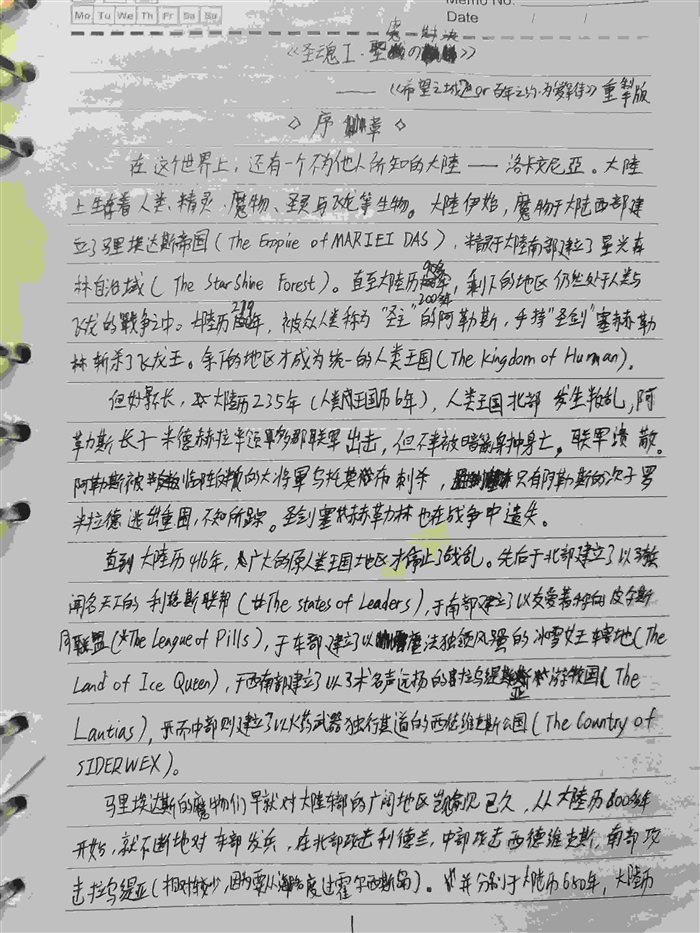 Memo No.
Mo Tu We Th Fr Sa Su
Date / /
《圣魂I·圣魔の对决》
——《希望之城 or 百年之约·为爱等待》重制版
◇ 序章 ◇
在这个世界上，还有一个不为他人所知的大陆——洛卡文尼亚。大陆
上生存着人类、精灵、魔物、圣灵与飞龙等生物。大陆伊始，魔物于大陆西部建
立了马里埃达斯帝国（The Empire of MARIEI DAS），精灵于大陆南部建立了星光森
林自治域（The StarShine Forest）。直至大陆历200多年，剩下的地区仍然处于人类与
飞龙的戰争之中。大陆历229年，被众人类称为“圣主”的阿勒斯，手持“圣剑”塞赫勒
林斩杀了飞龙王。余下的地区才成为统一的人类王国（The Kingdom of Human）。
但好景不长，大陆历235年（人类王国历6年），人类王国北部发生叛乱，阿
勒斯长子米德赫拉率领軍多那联軍出击，但不幸被暗箭射中身亡，联军溃散。
阿勒斯被临阵的大将軍乌托莫布刺杀，只有阿勒斯的次子罗
米拉德逃出重围，不知所踪。圣剑塞赫勒林也在战争中遗失。
直到大陆历416年，广大的原人类王国地区才停止了战乱。先后于北部建立了以
闻名天下的利德斯联邦（The states of Leaders），于南部建立了以
联盟（The League of Pills），于东部建立了以魔法独领风骚的冰雪女王辖地（The
Land of Ice Queen），于西南部建立了以名声远扬的拉乌缇亚游牧国（The
Lautias），而中部则建立了以火药武器独行其道的西德维克斯公国（The Country of
SIDERWEX）。
马里埃达斯的魔物们早就对大陆东部的广阔地区觊觎已久，从大陆历600多年
开始，就不断地对东部发兵，在北部攻击利德兰，中部攻击西德维克斯，南部攻
击拉乌缇亚（相对较少，因为要从海路度过霍尔西斯岛）。并分别于大陆历650年，大陆历
1